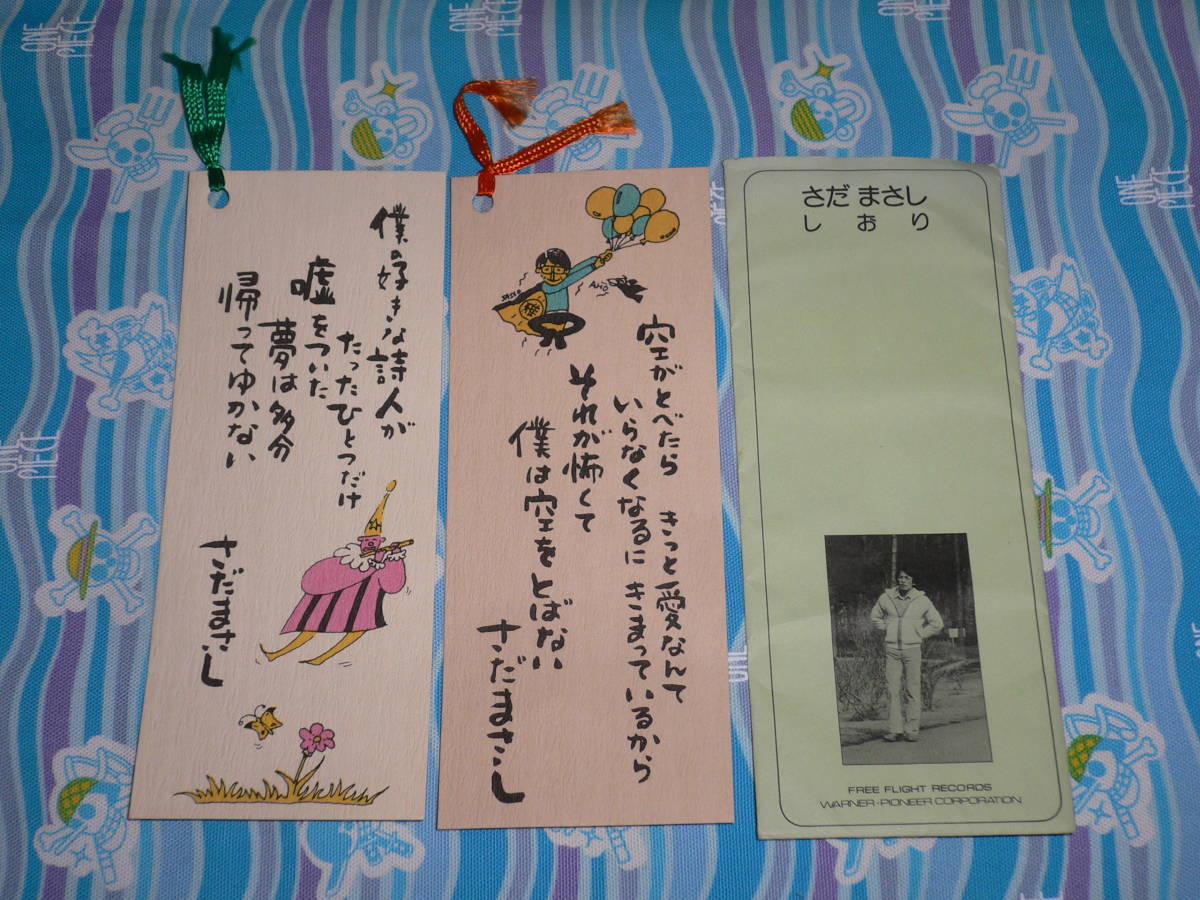 僕の好きな詩人が
たったひとつだけ
嘘をついた
夢は多分
帰ってゆかない
さだまさし
空がとべたら きっと愛なんて
いらなくなるに きまっているから
それが怖くて
僕は空をとばない
さだまさし
さだ まさし
しおり
FREE FLIGHT RECORDS
WARNER-PIONEER CORPORATION
ONE PIECE
ONE PIECE
ONE PIECE
ONE PIECE
ONE PIECE